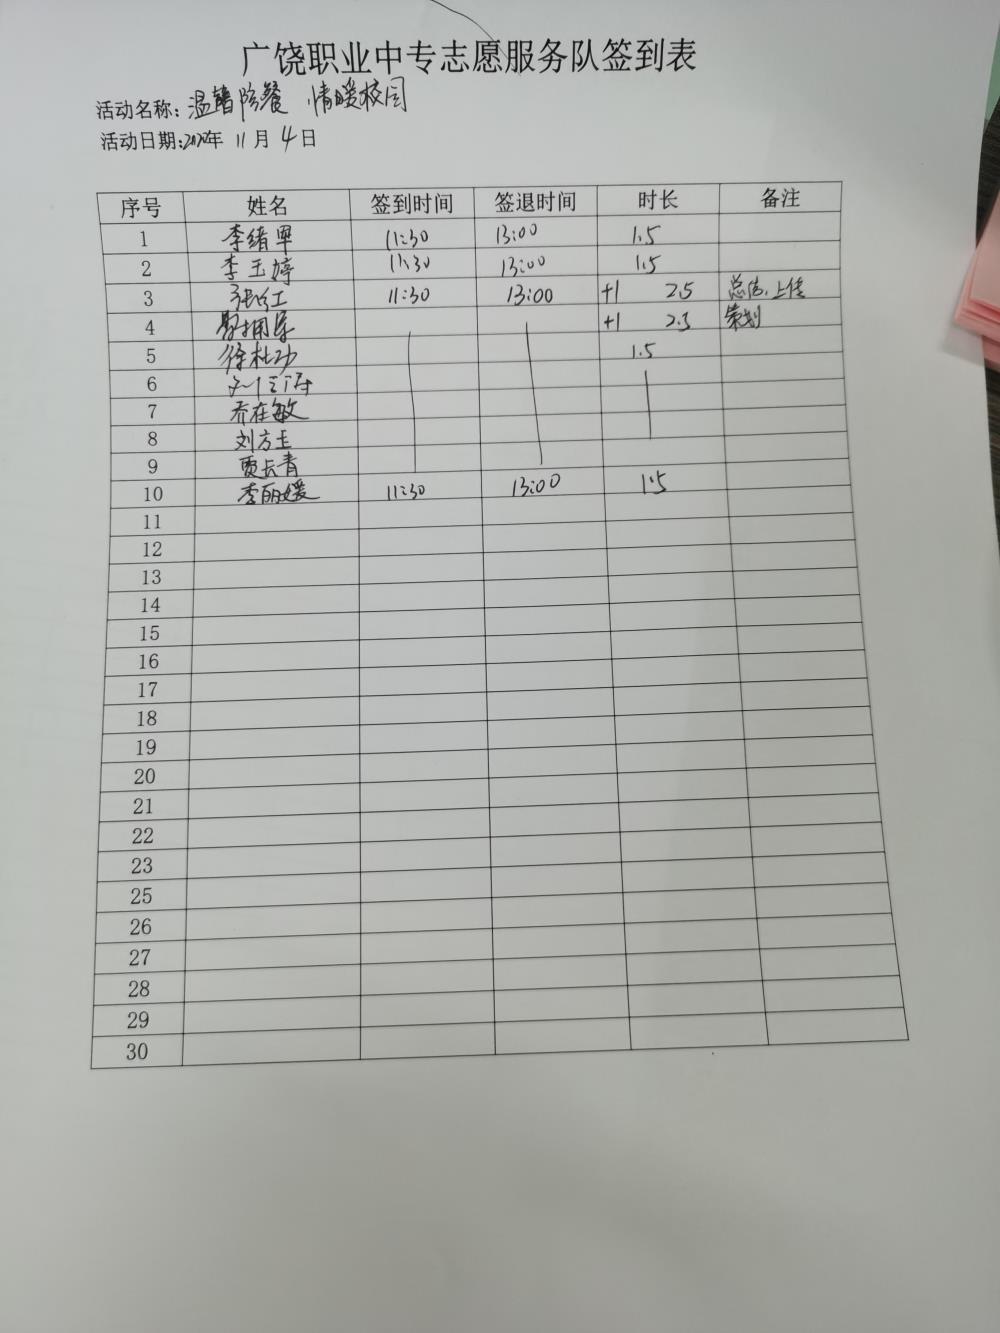 广饶职业中专志愿服务队签到表
活动名称：温馨陪餐 情暖校园
活动日期：2022年 11月 4日
序号 姓名 签到时间 签退时间 时长 备注
1 李绪 11:30 13:00 1.5
2 李玉婷 11:30 13:00 1.5
3 张红 11:30 13:00 +1 2.5 总结、上传
4 +1 2.5 策划
5 徐杜功 1.5
6
7 乔在敏
8 刘方玉
9 贾长青
10 李丽媛 11:30 13:00 1.5
11
12
13
14
15
16
17
18
19
20
21
22
23
25
26
27
28
29
30